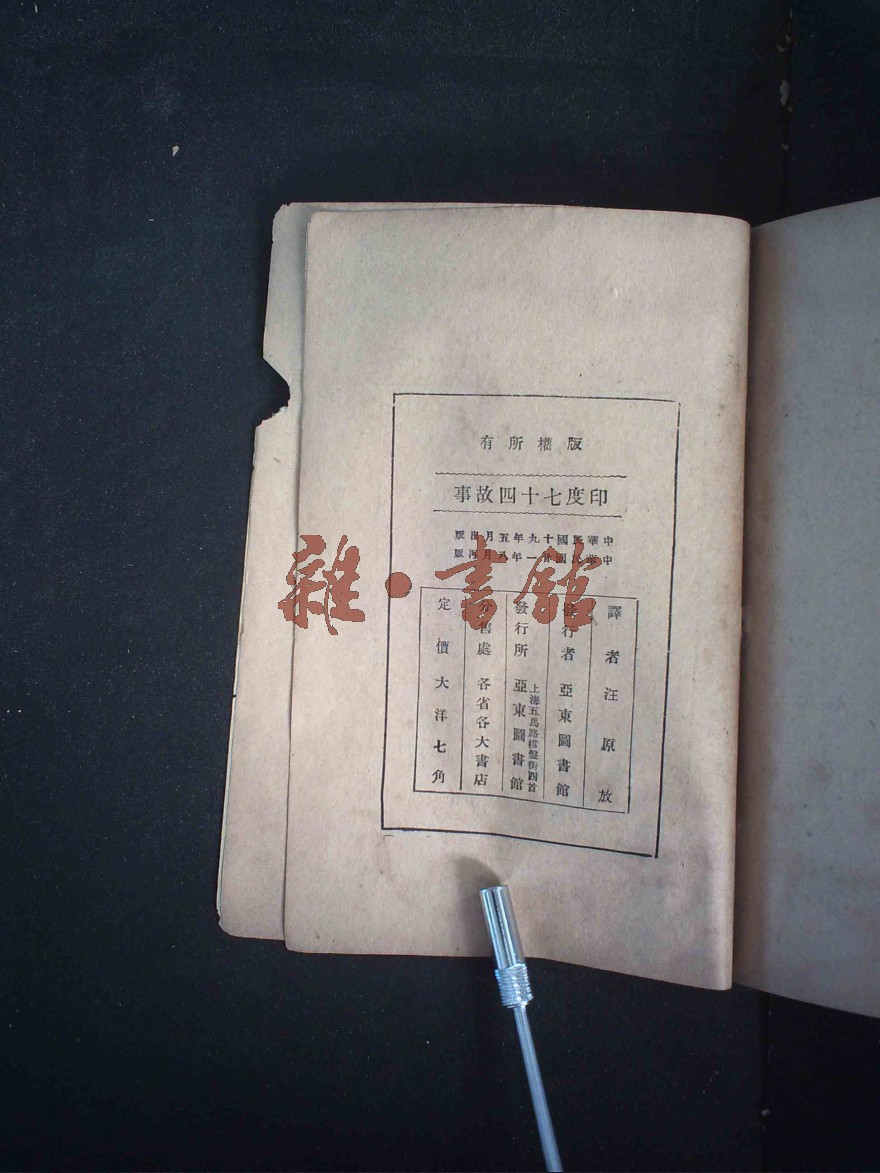 版權所有
印度七十四故事
中華民國十九年五月出版
中華民國廿一年八月再版
譯者汪原放
發行者亞東圖書館
發行所 上海五馬路棋盤街西首
亞東圖書館
分售處 各省各大書店
定價大洋七角
雜·書館